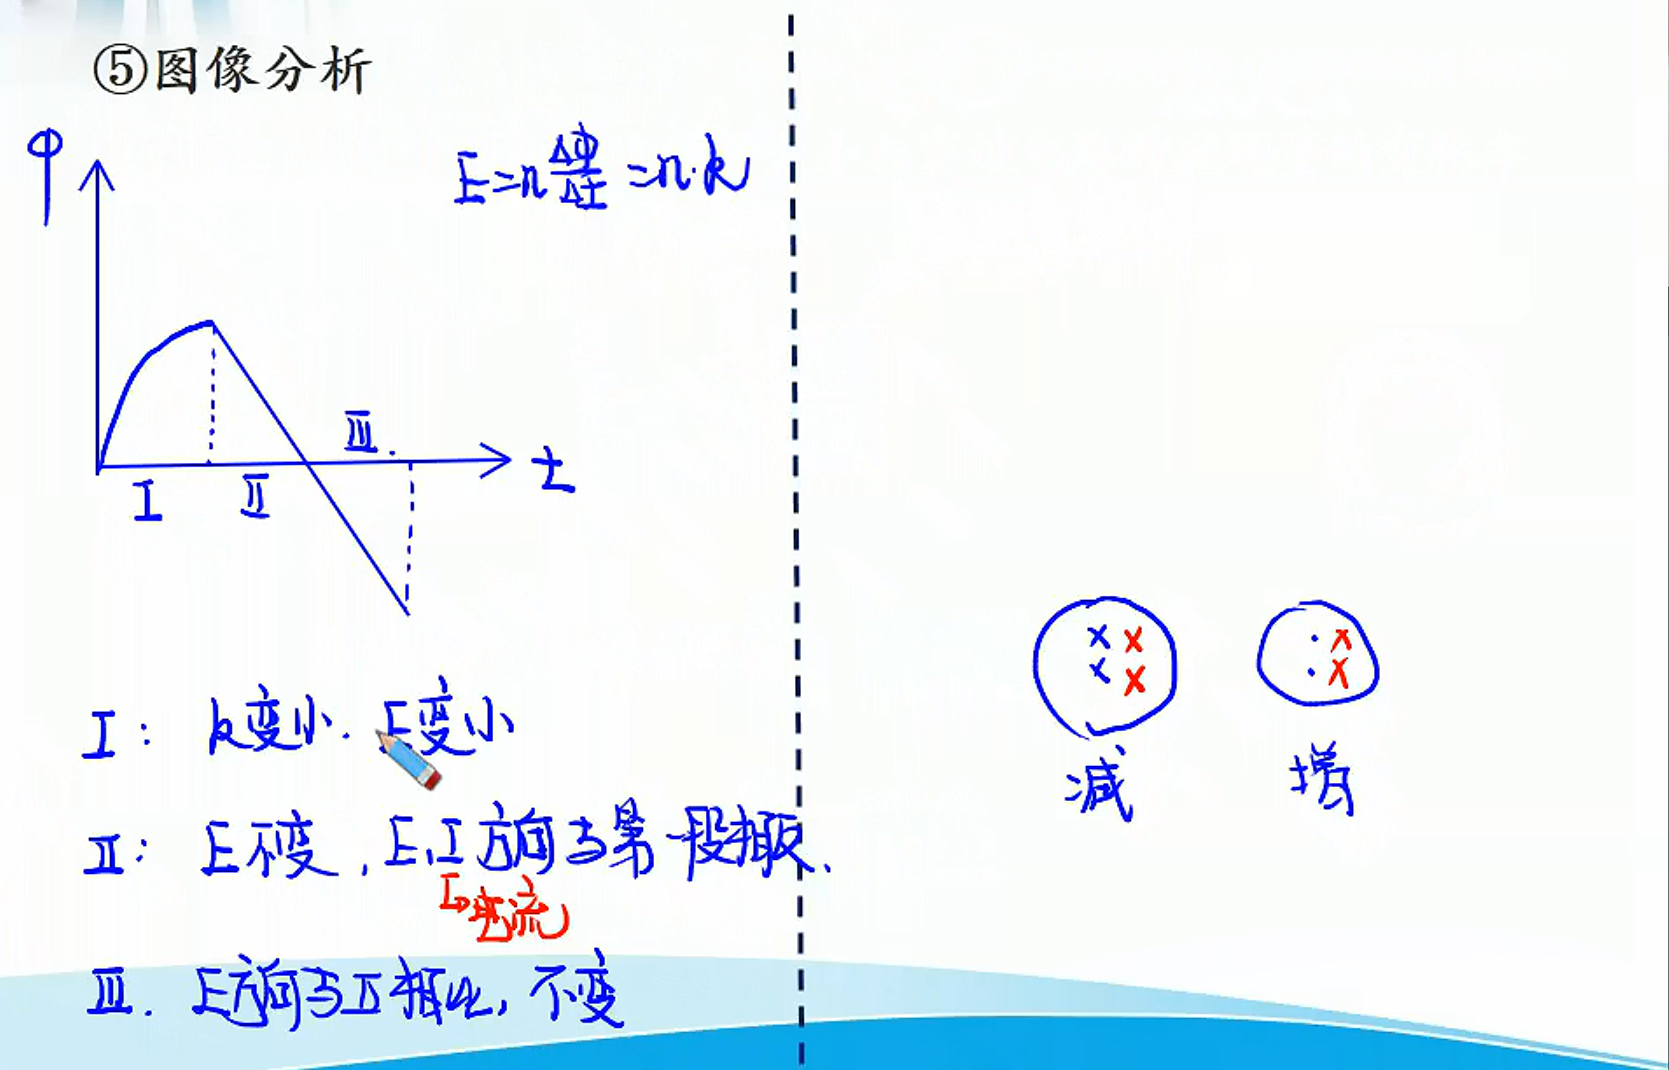 ⑤图像分析
Φ
E=n ΔΦ/Δt =n·k
Ⅲ
t
Ⅰ
Ⅱ
Ⅰ: k变小. E变小
Ⅱ: E不变, E、I方向与第一段相反.
电流
Ⅲ. E方向与Ⅱ相比, 不变
x x
x x
· x
· x
减
增